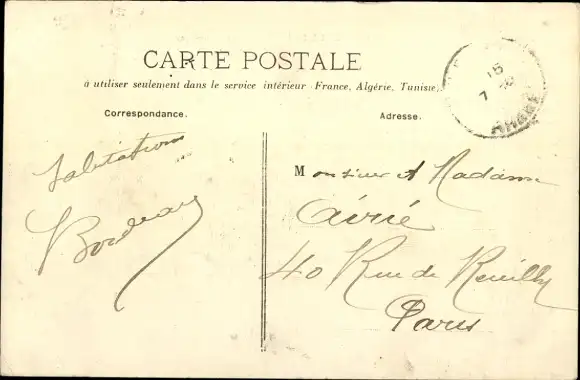 CARTE POSTALE
à utiliser seulement dans le service intérieur (France, Algérie, Tunisie)
Correspondance.
Adresse.
Salutations
Bordeaux
Monsieur et Madame
40 Rue de Reuilly
Paris
15
7